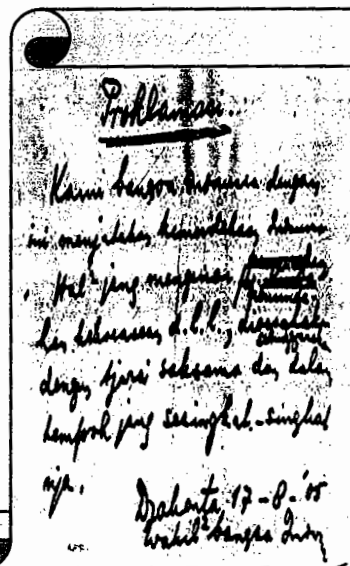 Proklamasi.
Kami bangsa Indonesia dengan
ini menjatakan kemerdekaan Indones
Hal² jang mengenai
d.l.l., diselenggarakan
dengan tjara saksama dan dalam
tempoh jang sesingkat-singkat
nja.
Djakarta, 17 - 8 - '05
Wakil² bangsa Indon